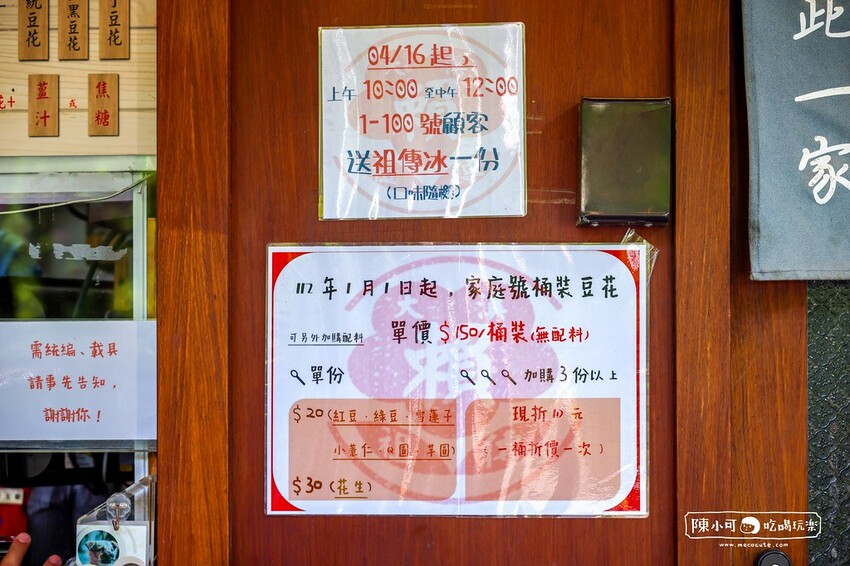 豆花
黑豆花
豆花
薑汁
或
焦糖
04/16起,
上午10:00至中午12:00
1-100號顧客
送祖傳冰一份
(口味隨機)
112年1月1日起,家庭號桶裝豆花
可另外加購配料
單價$150/桶裝(無配料)
單份
加購3份以上
$20(紅豆.綠豆.雪蓮子
小薏仁.Q圓.芋圓)
$30(花生)
現折10元
(一桶折價一次)
需統編、載具
請事先告知,
謝謝你!
一家
陳小可 吃喝玩樂
www.mecocute.com